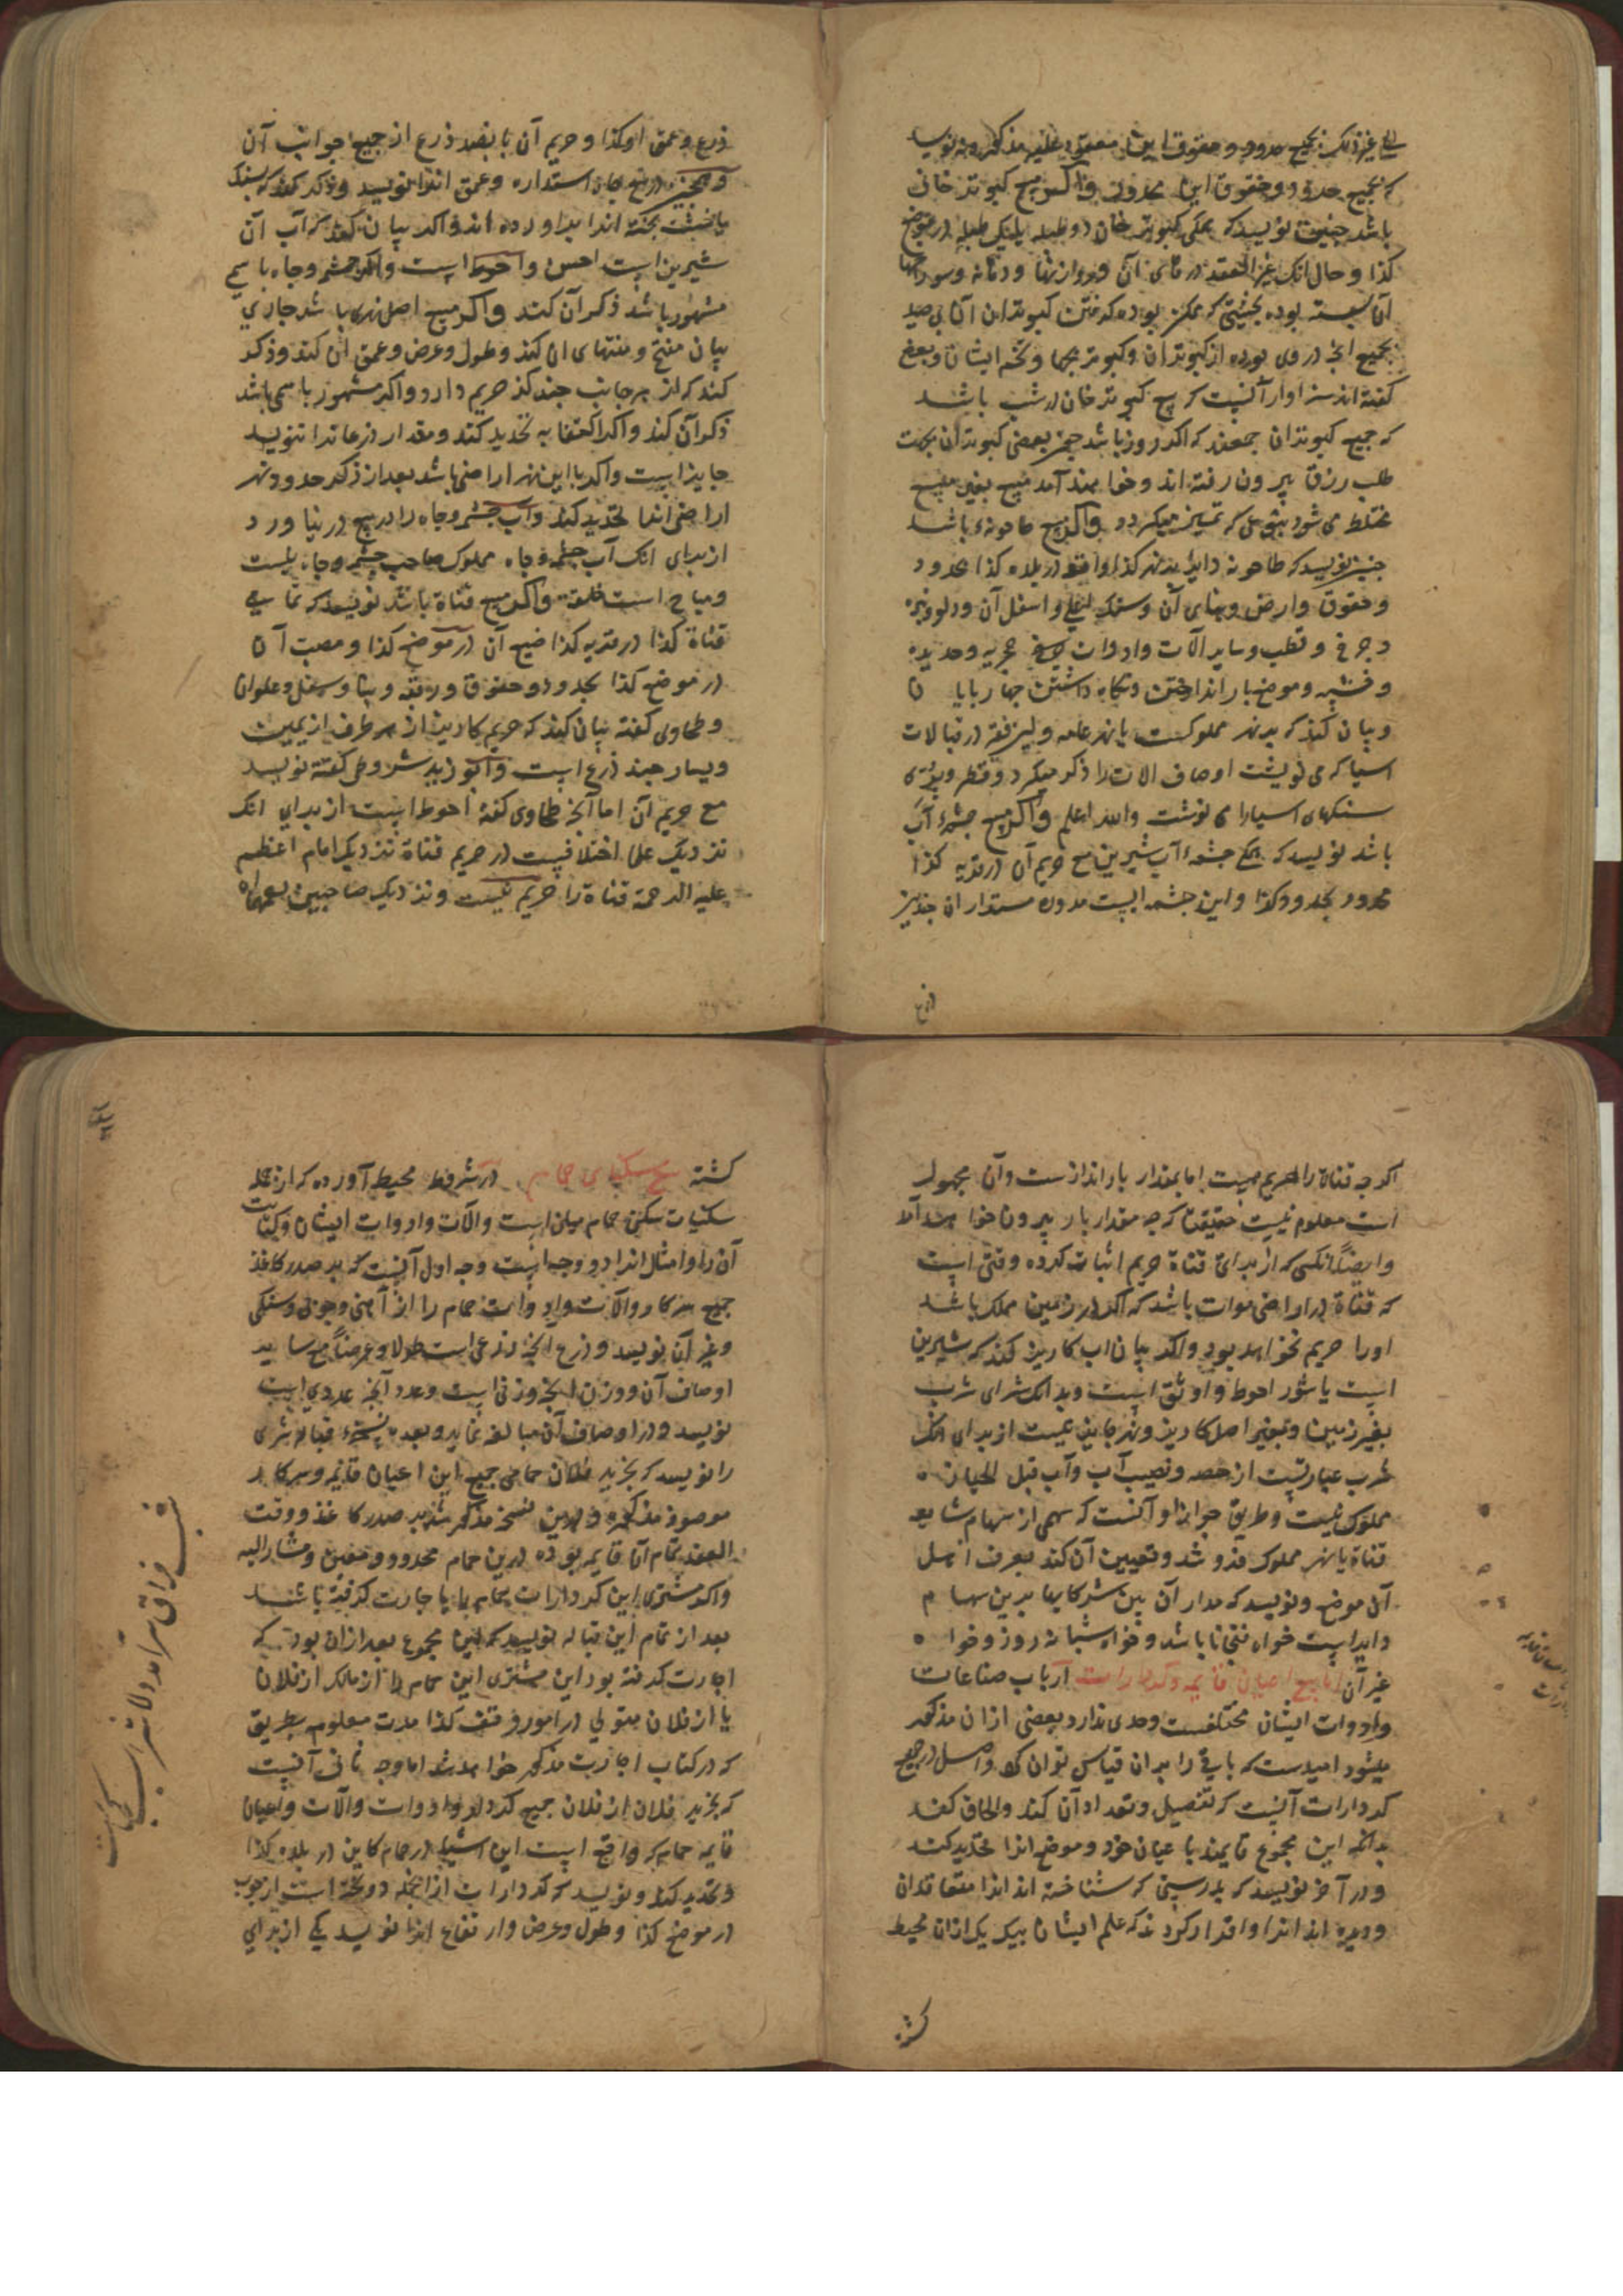 الی غیر ذلک بجمیع حدود و حقوق ایشان معقود علیه مذکور و نه نویسد
که بجمیع حدود و حقوق این محدود و اکر مبیع کبوتر خانی
باشد چنین نویسد که همکی کبوتر خان دو طبله یا یک طبله در موضع
کذا و حال انک عند العقد درهای آن و روازنها و دهانه و سوراخها
آن بسته بوده بحیثیتی که ممکن بوده کرفتن کبوتران آن بی صید
بجمیع انچ در وی بوده از کبوتران و کبوتر بچها و تخم ایشان و بعض
کفته اند سزاوار آنست که بیع کبوتر خان در شب باشد
که جمیع کبوتران جمعند که اکر روز باشد بعضی کبوتران بجهت
طلب رزق بیرون رفته اند و خواهند آمد مبیع بغیر مبیع
مختلط می شود بنوعی که تمییز نمیکردد و اکر مبیع طاحونه باشد
چنین نویسد که طاحونه دایره بنهر کذا واقع در بلده کذا محدود
و حقوق و ارض و بنای آن و سنک اعلی و اسفل آن و دلو
و چرخ و قطب و سایر آلات و ادوات حجریه و حدیدیه
و خشبیه و موضع بار انداختن و نکاه داشتن چهارپایان
و بیان کند که بر نهر مملوکست یا نهر عامه و در قبالات
اسیا که می نوشت اوصاف الات را ذکر میکرد و قطر
سنکهای اسیا را می نوشت والله اعلم و اکر مبیع چشمهٔ آب
باشد نویسد که همکی چشمهٔ آب شیرین مع حریم آن در قریه کذا
محدود بحدود کذا و این چشمه ایست مدور مستدار ان چندین
ذرع
ذرع و عمق او کذا و حریم آن پانصد ذرع از جمیع جوانب آن
و همچنین در بیع چاه استداره و عمق انرا نویسد و ذکر کند که بسنک
یا خشت پخته انرا براورده اند و اکر بیان کند که آب آن
شیرین است احسن و احوط است و اکر چشمه و چاه باسمی
مشهور باشد ذکر آن کند و اکر مبیع اصل نهر باشد جاری
بیان مفتح و منتهای ان کند و طول و عرض و عمق ان کند و ذکر
کند که از هر جانب چند کز حریم دارد و اکر مشهور باسمی باشد
ذکر آن کند و اکر اکتفا به تحدید کند و مقدار ذرعانرا ننویسد
جایز است و اکر با این نهر اراضی باشد بعد از ذکر حدود نهر
اراضی انرا تحدید کند و آب چشمه و چاه را در بیع در نیاورد
از برای انک آب چشمه و چاه مملوک صاحب چشمه و چاه نیست
و مباح است خلقة و اکر مبیع قناة باشد نویسد که تمامی
قناة کذا در قریه کذا ضیع آن در موضع کذا و مصب آن
در موضع کذا بحدود و حقوق و رقبه و بنا و سفل و علو ان
و طحاوی کفته بیان کند که حریم کاریز از هر طرف از یمین
و یسار چند ذرع است و ابو زید شروطی کفته نویسد
مع حریم آن اما آنچه طحاوی کفته احوط است از برای انک
نزدیک علما اختلافیست در حریم قناة نزدیک امام اعظم
علیه الرحمة قناة را حریم نیست و نزدیک صاحبین رحمهما الله
اکرچه قناة را حریم هست اما بمقدار بار اندازست و آن مجهول
است معلوم نیست حقیقتا که چه مقدار بار بیرون خواهد آمد
و ایضا انکسی که از برای قناة حریم اثبات کرده وقتی است
که قناة در اراضی موات باشد که اکر در زمین مملک باشد
اورا حریم نخواهد بود و اکر بیان اب کاریز کند که شیرین
است یا شور احوط و اوثق است و بدانک شرای شرب
بغیر زمین و بغیر اصل کاریز و نهر جایز نیست از برای انک
شرب عبارتست از حصه و نصیب آب و آب قبل الحیازه
مملوک نیست و طریق جواز او آنست که سهمی از سهام شایعه
قناة یا نهر مملوک فروشد و تعیین آن کند بعرف اهل
آن موضع و نویسد که مدار آن بین شرکایها برین سهام
دایر است خواه باشد و خواه شبانه روز و خواه
غیر آن اما بیع اعیان قایمه و کردارات ارباب صناعات
و ادوات ایشان مختلفست و حدی ندارد بعضی ازان مذکور
میشود امیدست که باقی را بران قیاس توان کرد و اصل در بیع
کردارات آنست که تفصیل و تعداد آن کند و الحاق کند
بدانکه این مجموع قایمند با عیان خود و موضع انرا تحدید کند
و در آخر نویسد که بدرستی که شناخته اند انرا متعاقدان
و دیده اند انرا و اقرار کردند که علم ایشان بیک یک ازان محیط
کشته
کشته بیع سکنیات حمام در شروط محیط آورده که از جمله
سکنیات سکنی حمامیان است و آلات و ادوات ایشان و کتابت
آن را و امثال انرا دو وجه است وجه اول آنست که بر صدر کاغذ
جمیع سرکار و آلات و ادوات حمام را از آهنی و چوبی و سنکی
و غیر آن نویسد و ذرع انچه ذرعی است طولا و عرضا مع سایر
اوصاف آن و وزن انچه وزنی است و عدد آنچه عددی است
نویسد و در اوصاف آن مبالغه نماید و بعده نسخهٔ قباله شری
را نویسد که بخرید فلان حمامی جمیع این اعیان قایمه و سرکار
موصوفه مذکوره درین نسخه مذکور شد بر صدر کاغذ و وقت
العقد تمام آن قایم بوده درین حمام محدود و معین و مشار الیه
و اکر مشتری این کردارات حمام را باجارت کرفته باشد
بعد از تمام این قباله نویسد که این مجموع بعد ازان بود که
اجارت کرفته بود این مشتری این حمام را از مالک از فلان
یا از فلان متولی در امور وقف کذا مدت معلوم بطریق
که در کتاب اجارت مذکور خواهد شد اما وجه ثانی آنست
که بخرید فلان از فلان جمیع کردار و ادوات و آلات و اعیان
قایمه حمام که واقع است این اشیا در حمام کاین در بلده کذا
و تحدید کند و نویسد که کردارات ازانجمله دو تخته است از چوب
در موضع کذا و طول و عرض و ارتفاع انرا نویسد یکی از برای